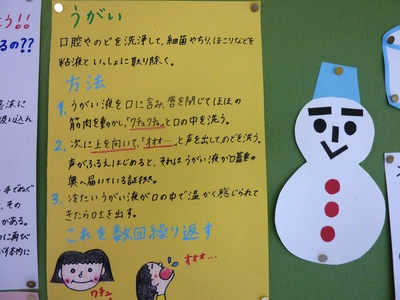 よう!!
るの??
うがい
口腔やのどを洗浄して、細菌やちり、ほこりなどを
粘液といっしょに取り除く。
方法
1. うがい液を口に含み、唇を閉じてほほの
筋肉を動かし、「クチュクチュ」と口の中を洗う。
2. 次に上を向いて、「オオオ…」と声を出して、のどを洗う。
声がふるえはじめると、それはうがい液が口蓋垂の
奥へ届いている証拠。
3. 冷たいうがい液が口の中で温かく感じられて
きたら口土き出す。
これを数回繰り返す
オオオ…
クチュ